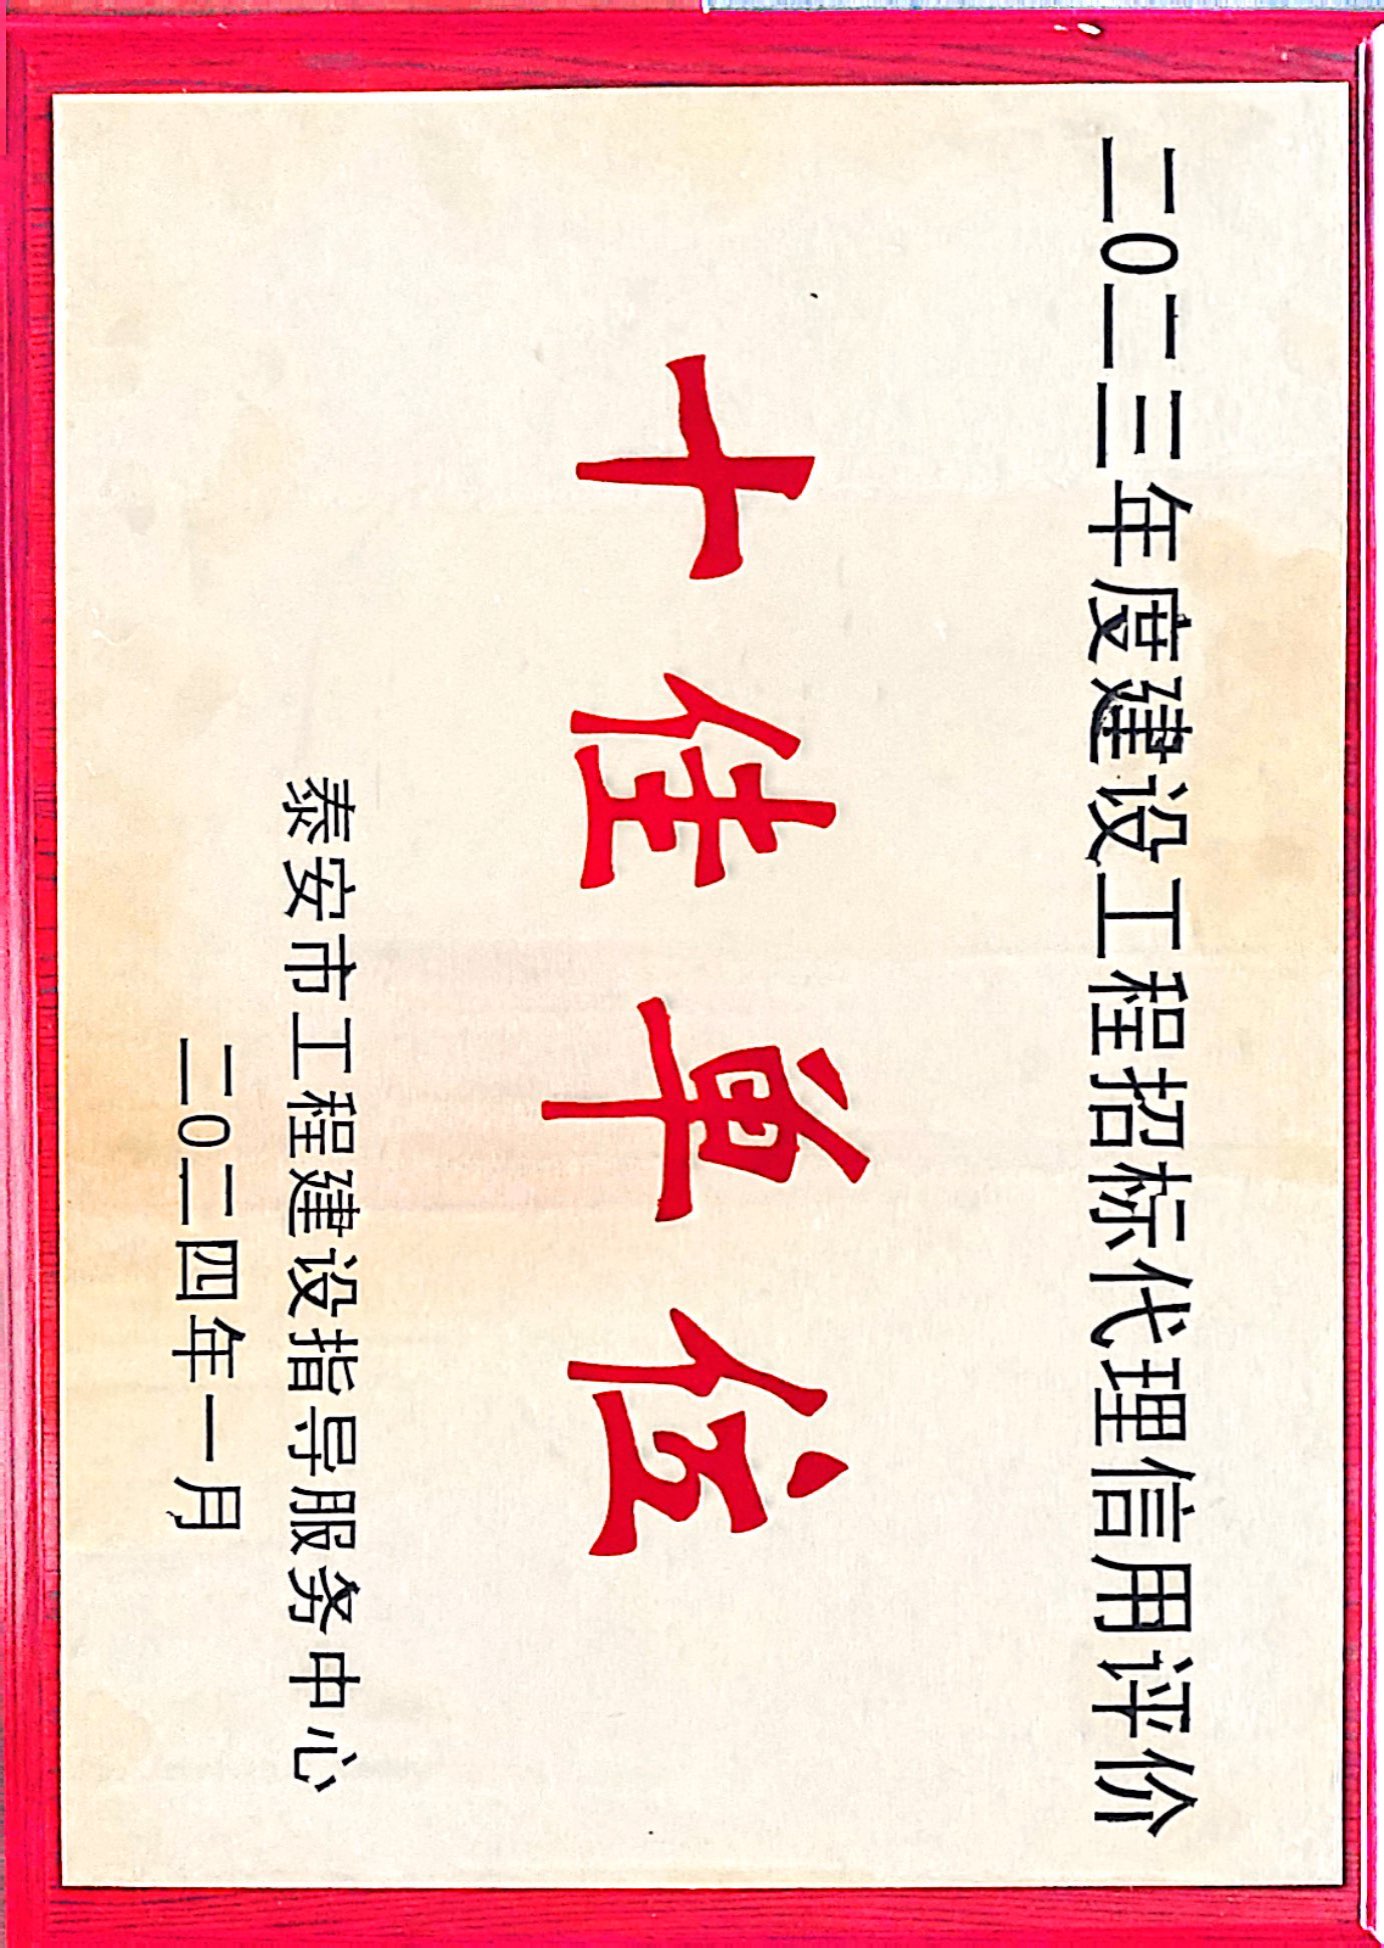 二0二三年度建设工程招标代理信用评价
十佳单位
泰安市工程建设指导服务中心
二0二四年一月